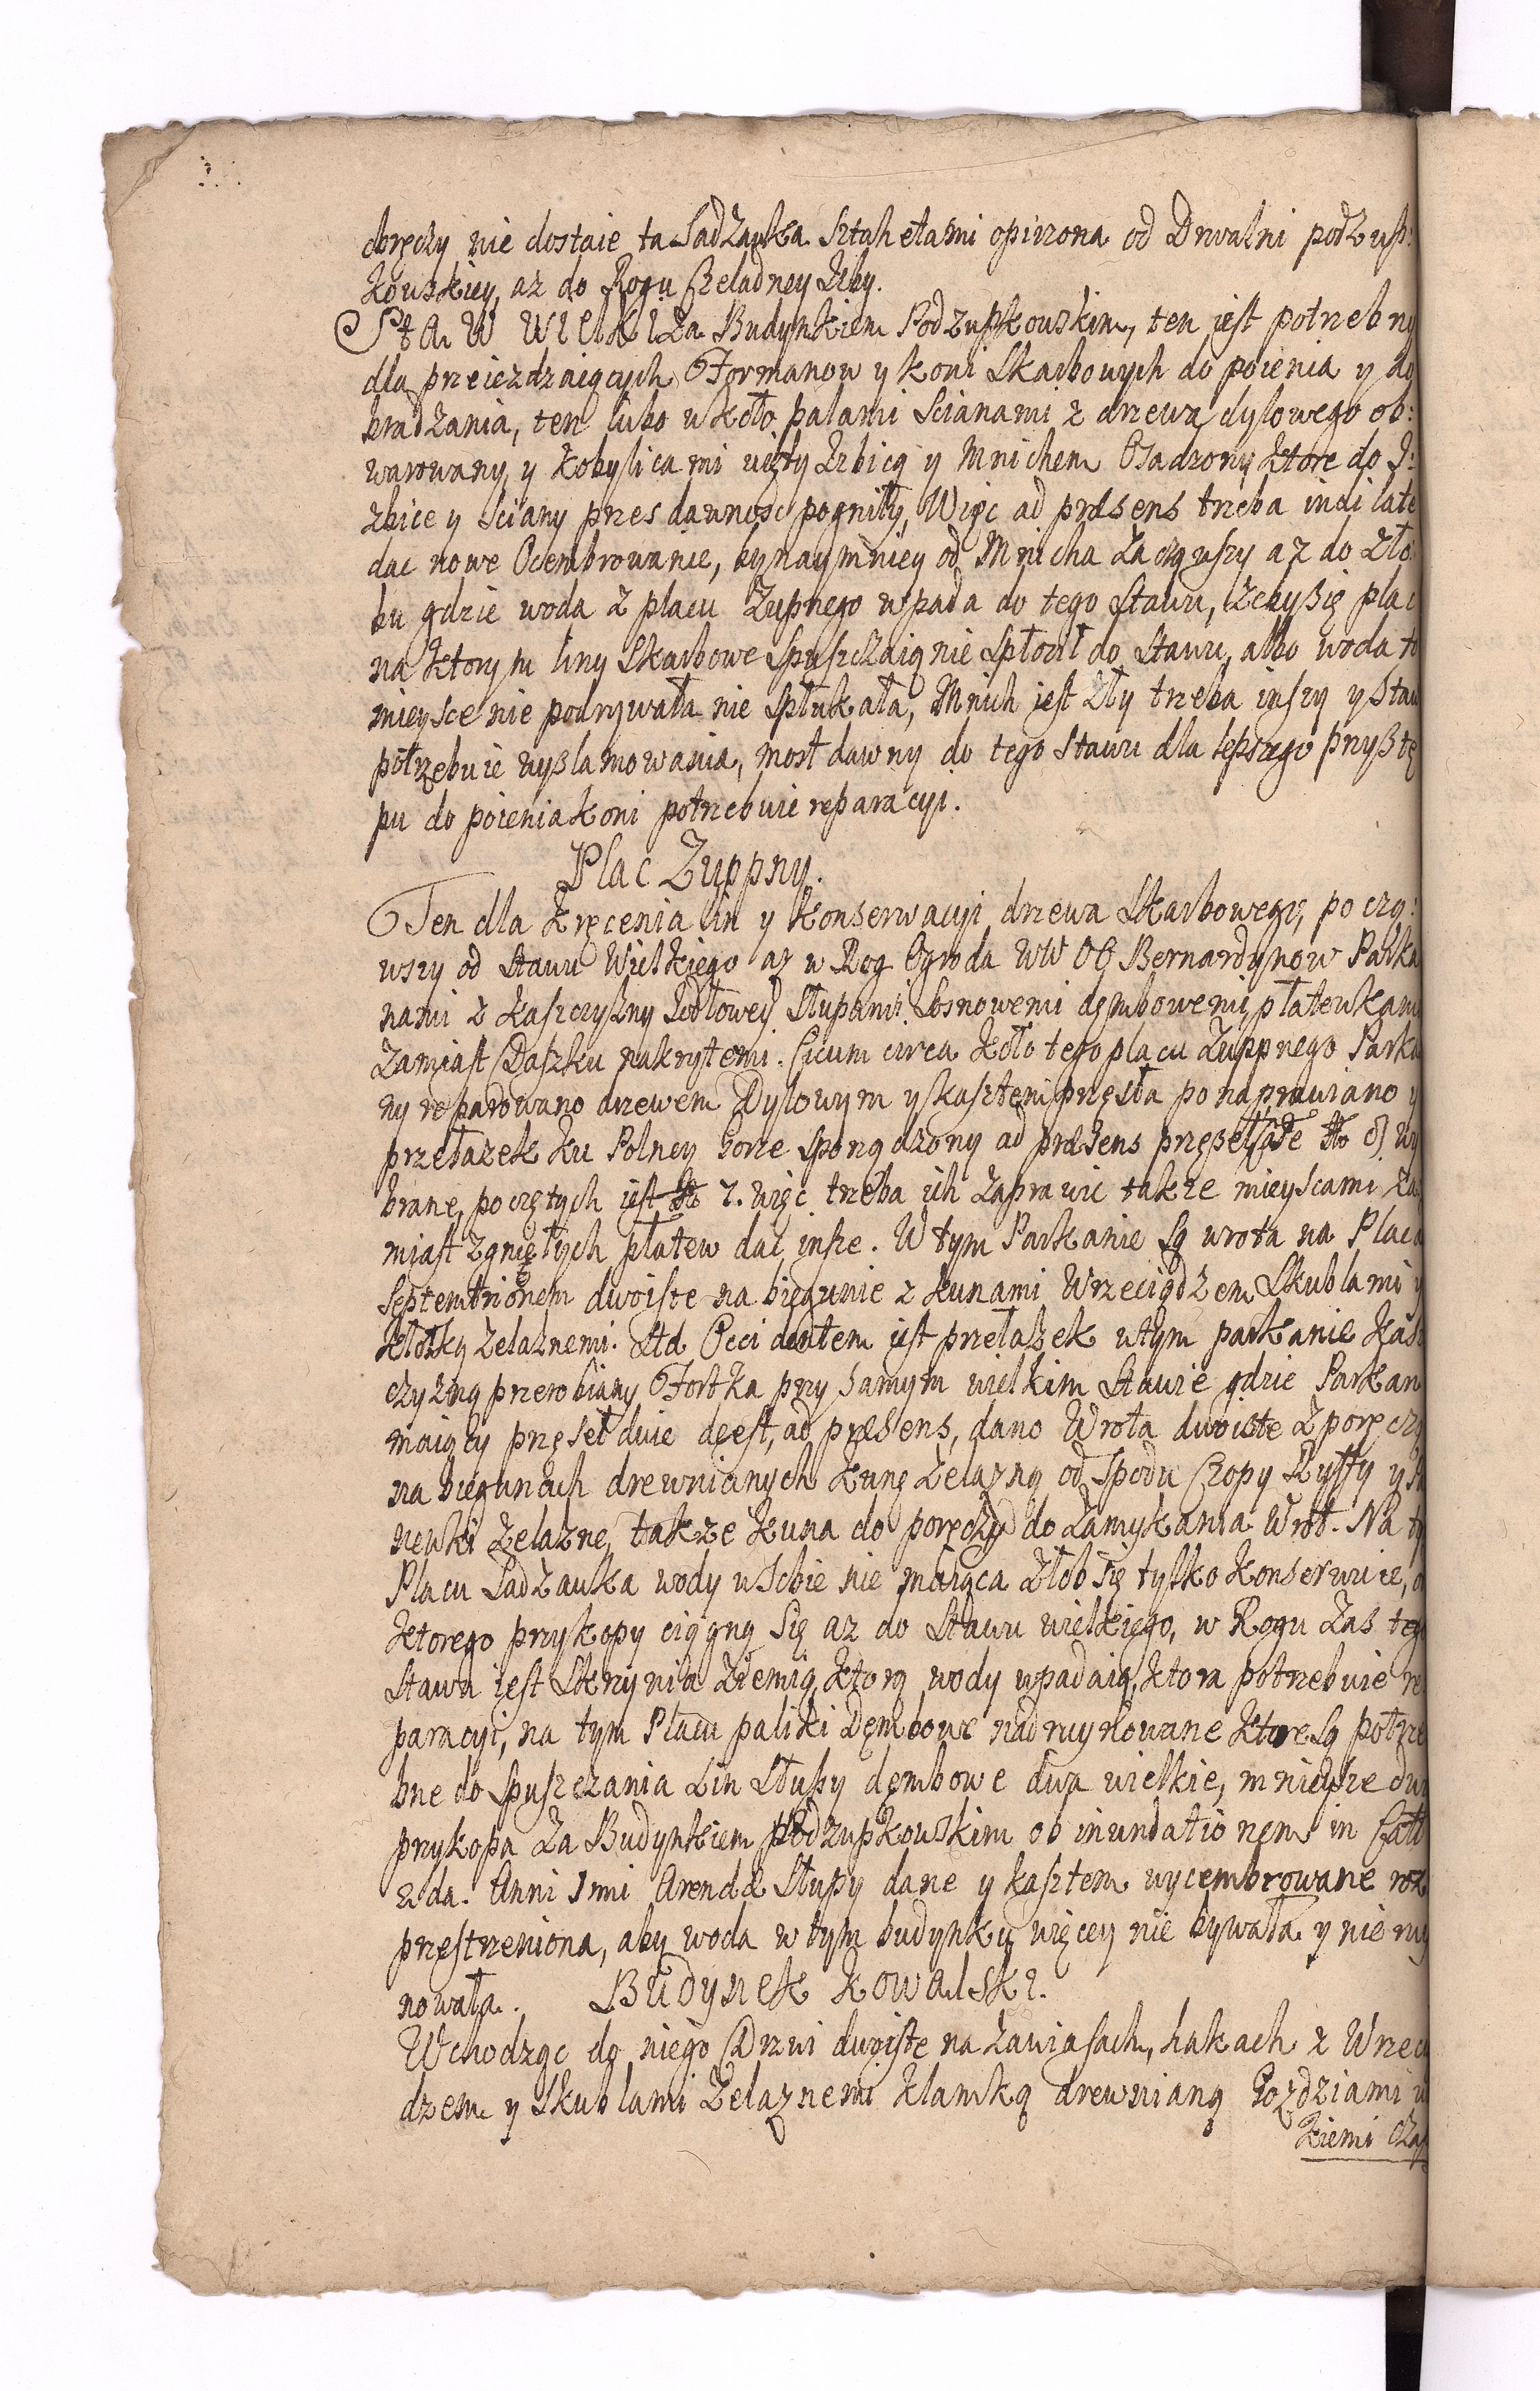 obręczy nie dostaie ta Sadzawka Sztahetami opirzona od Drwalni podzup:
kowskiey, az do Rogu Czeladney Izby.
StaW WIElKI Za Budynkiem Podzupkowskim, ten jest potrebny
dla przeiezdzaiących Formanow y koni Skarbowych do poienia y do
bradzania, ten lubo w koło palami Scianami z drzewa dylowego ob:
warowany, y kobylicami uięty Izbicą y Mnichem Osadzony, ktore do I:
zbice y Sciany przes dawnosc pogniły, Więc ad præsens trzeba
dac nowe Ocembrowanie, bynaymniey od Mnicha Zacząwszy az do Zło
bu gdzie woda z placu Zupnego wpada do tego Stawu, Zeby Się plac
na ktorym liny Skarbowe Spuszczaią nie do Stawu, albo woda t
mieysce nie podrywała nie Spłukała, Mnich jest Zły trzeba inszy y Staw
potrzebuie wyszlamowania, most dawny do tego Stawu dla lepszego przystę
pu do poienia koni potrzebuie reparacyi.
Plac Zuppny.
Ten dla kręcenia lin y konserwacyi drzewa Skarbowego, począ:
wszy od Stawu Wielkiego az w Rog Ogroda WW OO Bernardynow Parka
nami z kaszczyzny Iodłowey Słupami Sosnowemi dęmbowemi, płatewkami
Zamiast Daszku nakrytemi. Cicum circa koło tego placu Zuppnego Parka
ny reparowano drzewem Dylowym y kasztem przęsła ponaprawiano y
przełazek ku Polney Gorze Sporządzony ad præsens przęseł
brane, poczętych jest 7. więc trzeba ich Zaprawic takze mieyscami Za
miast zgniełych płatew dac insze. W tym Parkanie Są wrota na Plac a
Septemtrionem dwoiste na biegunie z kunami Wrzeciądzem Skublami y
kłotką zelaznemi. Ad Occidentem jest przełazek w tym parkanie kasz
czyzną przerobiany Fortka przy Samym wielkim Stawie gdzie Parkan
maiący przęseł dwie deest, ad præsens, dano Wrota dwoiste z poręczą
na biegunach drewnianych kunę Zelazną od Spodu Czopy Ryffy y
newki Zelazne, takze kuna do poręczy do Zamykania Wrot. Na ty
Placu Sadzawka wody w Sobie nie maiąca Złob Się tylko konserwuie, o
ktorego przykopy ciągną Się az do Stawu wielkiego, w Rogu Zas teg
Stawu iest Skrynia Ziemią, ktorą wody wpadaią, ktora potrzebuie re
paracyi, na tym Placu paliki Dęmbowe nadruynowane ktore Są potrze
bne do Spuszczania Lin Słupy dęmbowe dwa wielkie, mnieysze dw
przykopa Za Budynkiem podzupkowskim ob inundationem in
2da. Anni 1mi Arendæ Słupy dane y kasztem wycembrowane roz
przestrzeniona, aby woda w tym budynku więcey nie bywała y nie ruy
nowała. Budynek Kowalski.
Wchodząc do niego Drzwi dwoiste na Zawiasach, hakach z Wrzecią
dzem y Skublami Zelaznemi klamką drewnianą Gozdziami